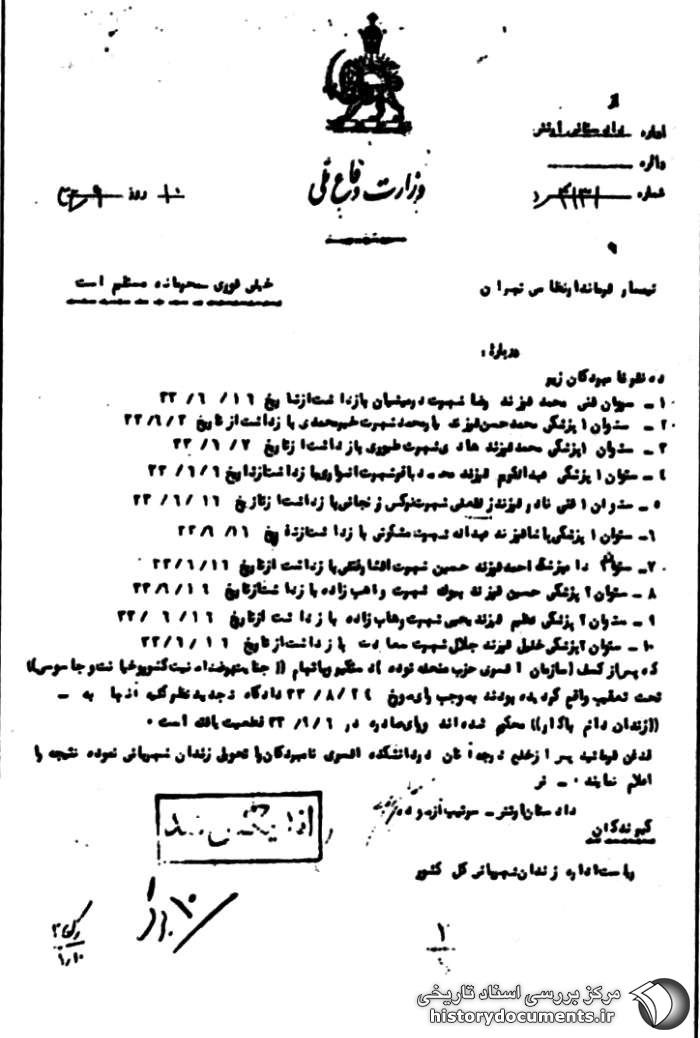 از
اداره دادستانی ارتش
دائره
شماره
وزارت دفاع ملی
۱۰ روز ۹
تیمسار فرماندار نظامی تهران
خیلی فوری محرمانه مستقیم است
درباره :
ده نفر نامبردگان زیر
۱۰ـ سروان فنی محمد فرزند رضا شهرت درمیشیان بازداشت از تاریخ ۱۶ /۶ /۳۳
۲۰ـ ستوان ۱ پزشکی محمدحسن فرزند یارمحمد شهرت خیرمحمدی بازداشت از تاریخ ۲ /۶ /۳۳
۳ـ ستوان ۱ پزشکی محمد فرزند هادی شهرت طبوری بازداشت از تاریخ ۲ /۶ /۳۳
۴ـ ستوان ۱ پزشکی عبدالکریم فرزند محمدباقر شهرت انواری بازداشت از تاریخ ۶ /۶ /۳۳
۵ـ ستوان ۱ فنی نادر فرزند شهرت نرگس زنجانی بازداشت از تاریخ ۱۶ /۶ /۳۳
۶ـ ستوان ۱ پزشکی پاشا فرزند عبداله شهرت مشکوتی بازداشت از تاریخ ۱۶ /۶ /۳۳
۷۰ـ ستوان دامپزشک احمد فرزند حسین شهرت بازداشت از تاریخ ۱۶ /۶ /۳۳
۸ـ ستوان ۲ پزشکی حسین فرزند شهرت واهب زاده بازداشت از تاریخ ۱۶ /۶ /۳۳
۹ـ ستوان ۲ پزشکی عظیم فرزند یحیی شهرت وهاب زاده بازداشت از تاریخ ۱۶ /۶ /۳۳
۱۰ـ ستوان ۲ پزشکی خلیل فرزند جلال شهرت سعادت بازداشت از تاریخ ۱۶ /۶ /۳۳
که پس از کشف (سازمان افسری حزب منحله توده) دستگیر و باتهام ((جنایت بر ضد امنیت کشور و خیانت و جاسوسی))
تحت تعقیب واقع گردیده بودند بموجب رای مورخ ۲۴ /۸ /۳۳ دادگاه تجدید نظر کلیه آنها به ـ
((زندان دائم با کار)) محکوم شده اند و رای صادره در ۶ /۹ /۳۳ قطعیت یافته است ۰
قدغن فرمائید پس از خلع درجه آنان در دانشکده افسری نامبردگان را تحویل زندان شهربانی نموده نتیجه را
اعلام نمایند ۰ـ
دادستان ارتش ـ سرتیپ آزموده
گیرندگان
ریاست اداره زندان شهربانی کل کشور
۱۰
۱
مرکز بررسی اسناد تاریخی
historydocuments.ir